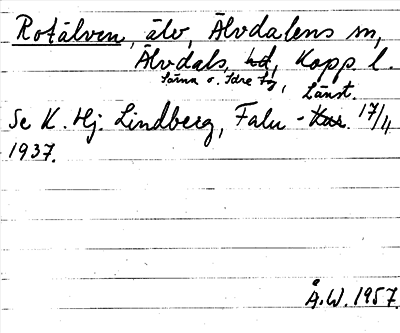 Rotälven, älv, Älvdalens sn,
Älvdals hd, Kopp. l.
Särna o. Idre tg,
Länst.
Se K. Hj. Lindberg, Falu-Kur. 17/11
1937.
Å.W. 1957.